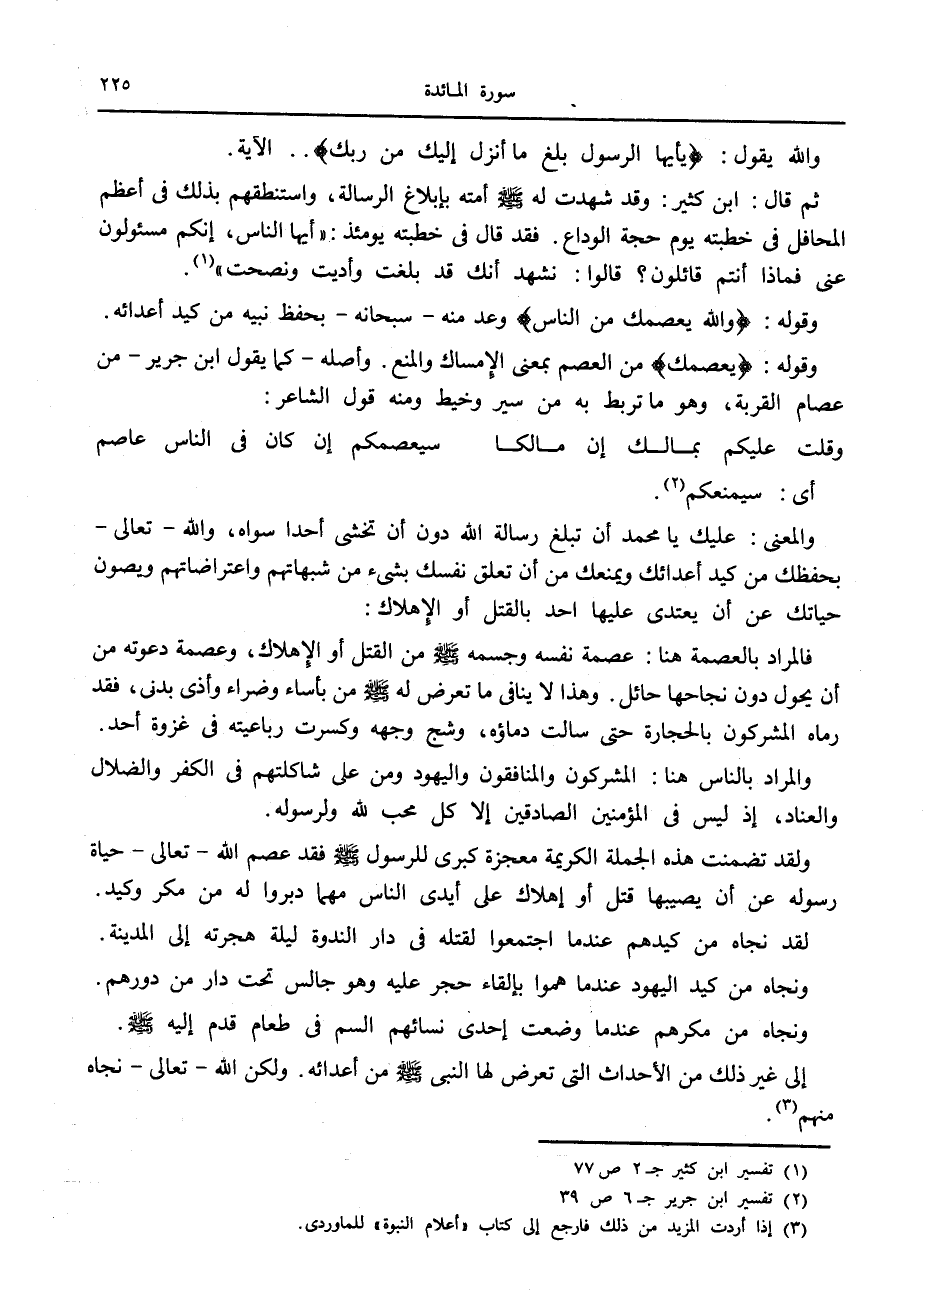 سورة المائدة ٢٢٥
والله يقول : ﴿يأيها الرسول بلغ ما أنزل إليك من ربك﴾ . . الآية .
ثم قال : ابن كثير : وقد شهدت له ﷺ أمته بإبلاغ الرسالة ، واستنطقهم بذلك فى أعظم
المحافل فى خطبته يوم حجة الوداع . فقد قال فى خطبته يومئذ : «أيها الناس ، إنكم مسئولون
عنى فماذا أنتم قائلون ؟ قالوا : نشهد أنك قد بلغت وأديت ونصحت»(١) .
وقوله : ﴿والله يعصمك من الناس﴾ وعد منه - سبحانه - بحفظ نبيه من كيد أعدائه .
وقوله : ﴿يعصمك﴾ من العصم بمعنى الإمساك والمنع . وأصله - كما يقول ابن جرير - من
عصام القربة ، وهو ما تربط به من سير وخيط ومنه قول الشاعر :
وقلت عليكم بمـالـك إن مـالكـا سيعصمكم إن كان فى الناس عاصم
أى : سيمنعكم(٢) .
والمعنى : عليك يا محمد أن تبلغ رسالة الله دون أن تخشى أحدا سواه ، والله - تعالى -
بحفظك من كيد أعدائك ويمنعك من أن تعلق نفسك بشىء من شبهاتهم واعتراضاتهم ويصون
حياتك عن أن يعتدى عليها احد بالقتل أو الإهلاك :
فالمراد بالعصمة هنا : عصمة نفسه وجسمه ﷺ من القتل أو الإهلاك ، وعصمة دعوته من
أن يحول دون نجاحها حائل . وهذا لا ينافى ما تعرض له ﷺ من بأساء وضراء وأذى بدنى ، فقد
رماه المشركون بالحجارة حتى سالت دماؤه ، وشج وجهه وكسرت رباعيته فى غزوة أحد .
والمراد بالناس هنا : المشركون والمنافقون واليهود ومن على شاكلتهم فى الكفر والضلال
والعناد ، إذ ليس فى المؤمنين الصادقين إلا كل محب لله ولرسوله .
ولقد تضمنت هذه الجملة الكريمة معجزة كبرى للرسول ﷺ فقد عصم الله - تعالى - حياة
رسوله عن أن يصيبها قتل أو إهلاك على أيدى الناس مهما دبروا له من مكر وكيد .
لقد نجاه من كيدهم عندما اجتمعوا لقتله فى دار الندوة ليلة هجرته إلى المدينة .
ونجاه من كيد اليهود عندما هموا بإلقاء حجر عليه وهو جالس تحت دار من دورهم .
ونجاه من مكرهم عندما وضعت إحدى نسائهم السم فى طعام قدم إليه ﷺ .
إلى غير ذلك من الأحداث التى تعرض لها النبى ﷺ من أعدائه . ولكن الله - تعالى - نجاه
منهم(٣) .
(١) تفسير ابن كثير جـ ٢ ص ٧٧
(٢) تفسير ابن جرير جـ ٦ ص ٣٩
(٣) إذا أردت المزيد من ذلك فارجع إلى كتاب «أعلام النبوة» للماوردى .